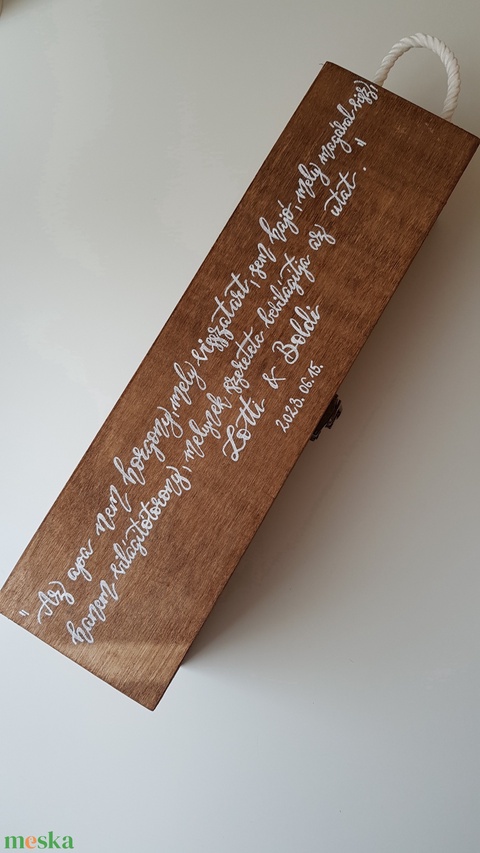 "Az apa nem horgony, mely visszatart, sem hajó, mely magával visz,
hanem világítótorony, melynek szeretete bevilágítja az utat."
Lotti & Boldi
2023. 06. 15.
meska